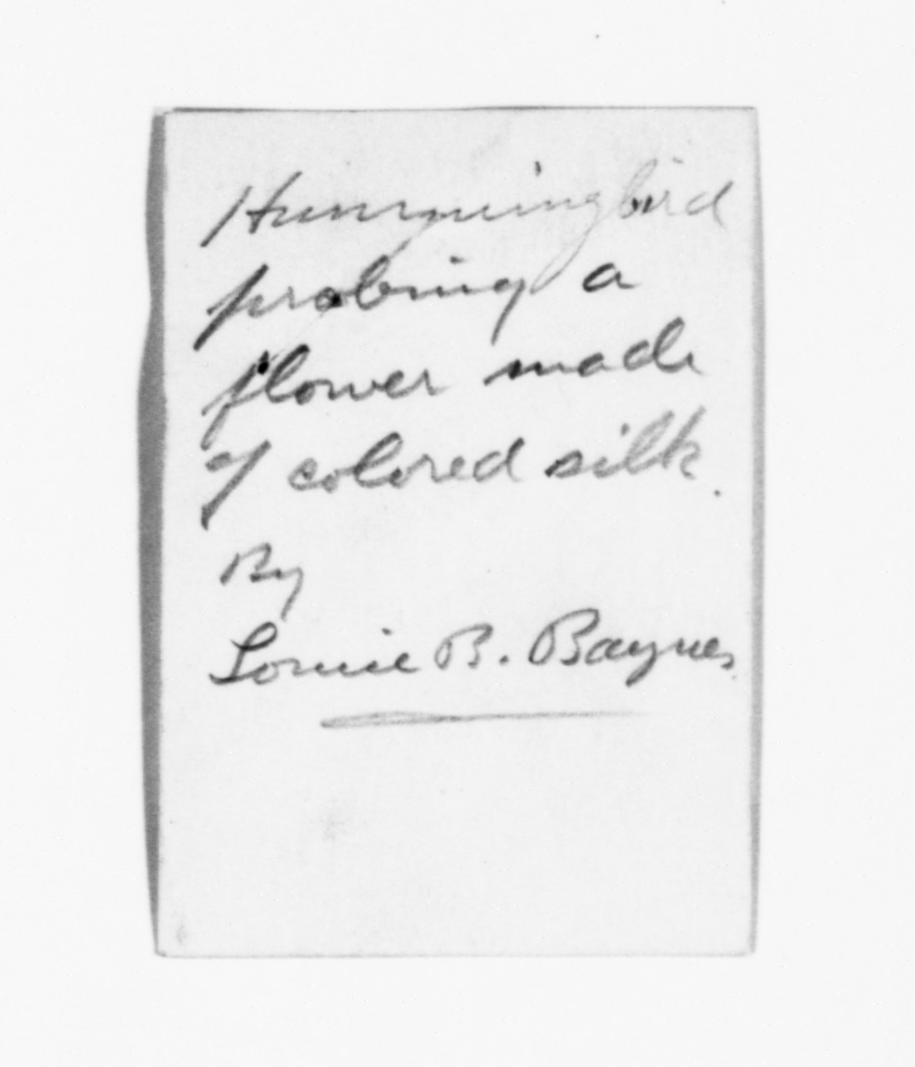 Hummingbird
probing a
flower made
of colored silk.
By
Louise B. Baynes.